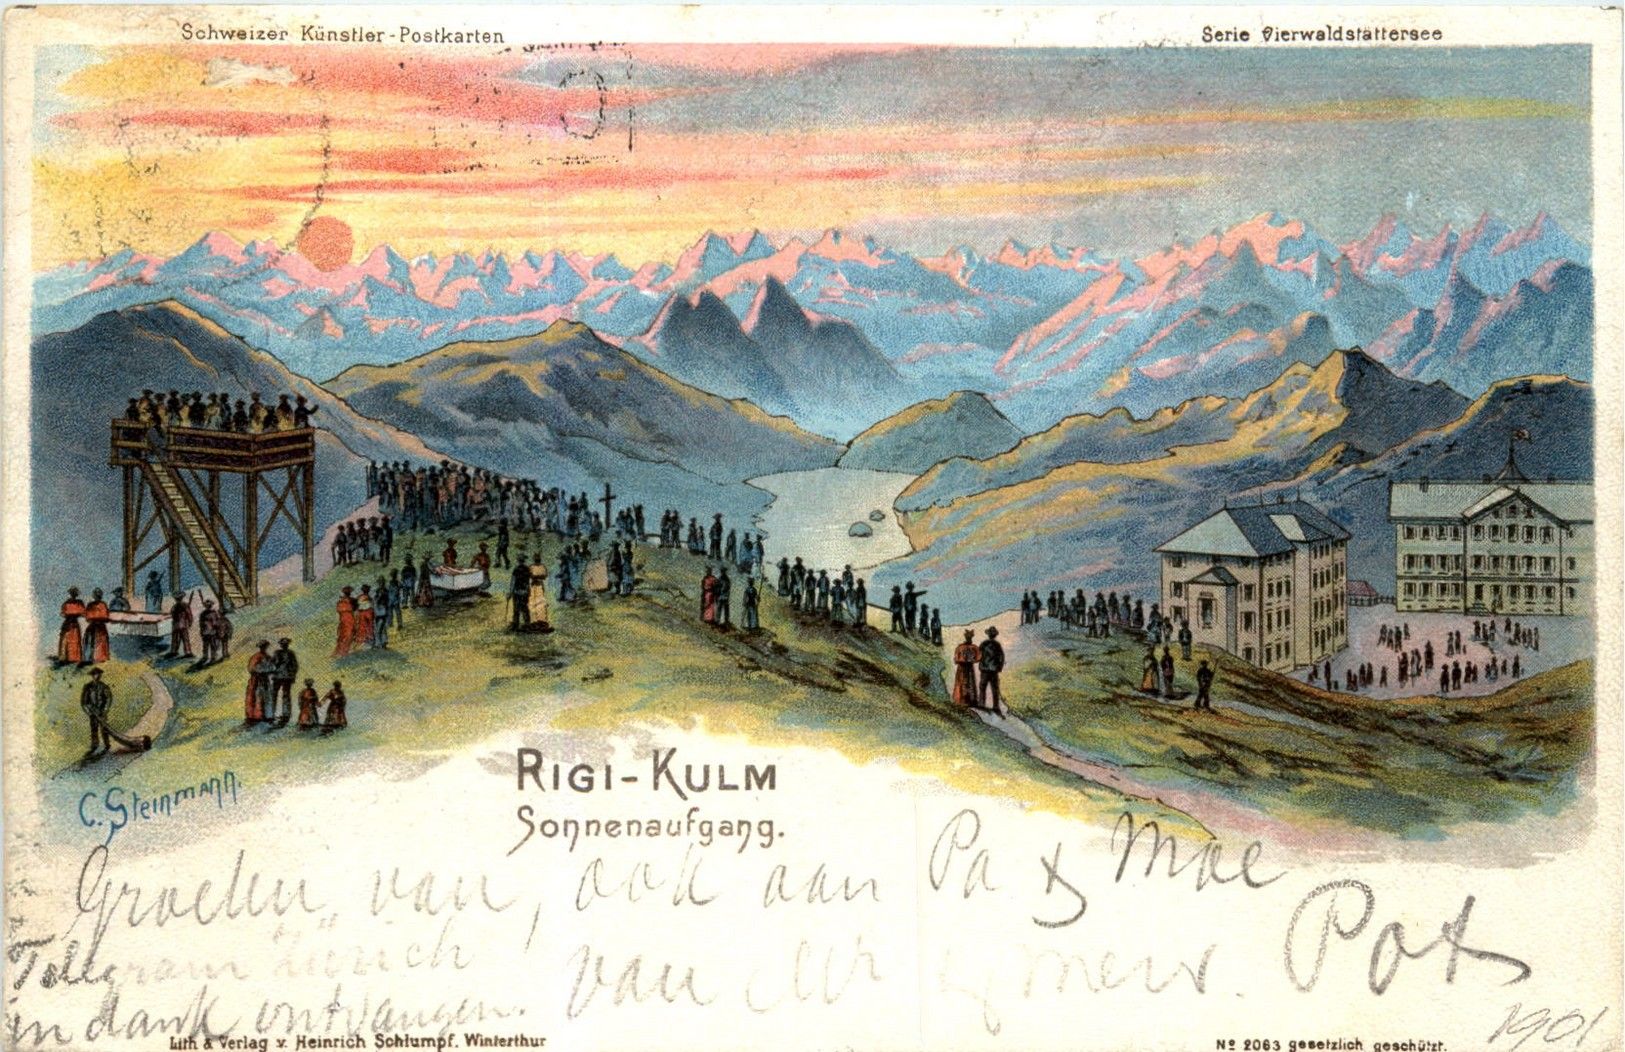 Schweizer Künstler-Postkarten
Serie Vierwaldstättersee
C. Steinmann.
RIGI-KULM
Sonnenaufgang.
Groeten van, ook aan Pa & Moe
van
Pot
Telegram Zürich
in dank ontvangen.
1901
Lith & Verlag v. Heinrich Schlumpf. Winterthur
Nº 2063 gesetzlich geschützt.